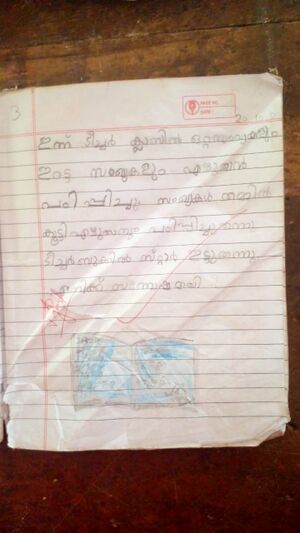 3
PAGE NO.
DATE:
ഇന്ന് ടീച്ചർ ക്ലാസിൽ ഒറ്റസംഖ്യകളും
ഇരട്ട സംഖ്യകളും എഴുതാൻ
പഠിപ്പിച്ചു. സംഖ്യകൾ തമ്മിൽ
കൂട്ടി എഴുതാനും പഠിപ്പിച്ചുതന്നു
ടീച്ചർ ബുക്കിൽ സ്റ്റാർ ഇട്ടുതന്നു.
എനിക്ക് സന്തോഷമായി